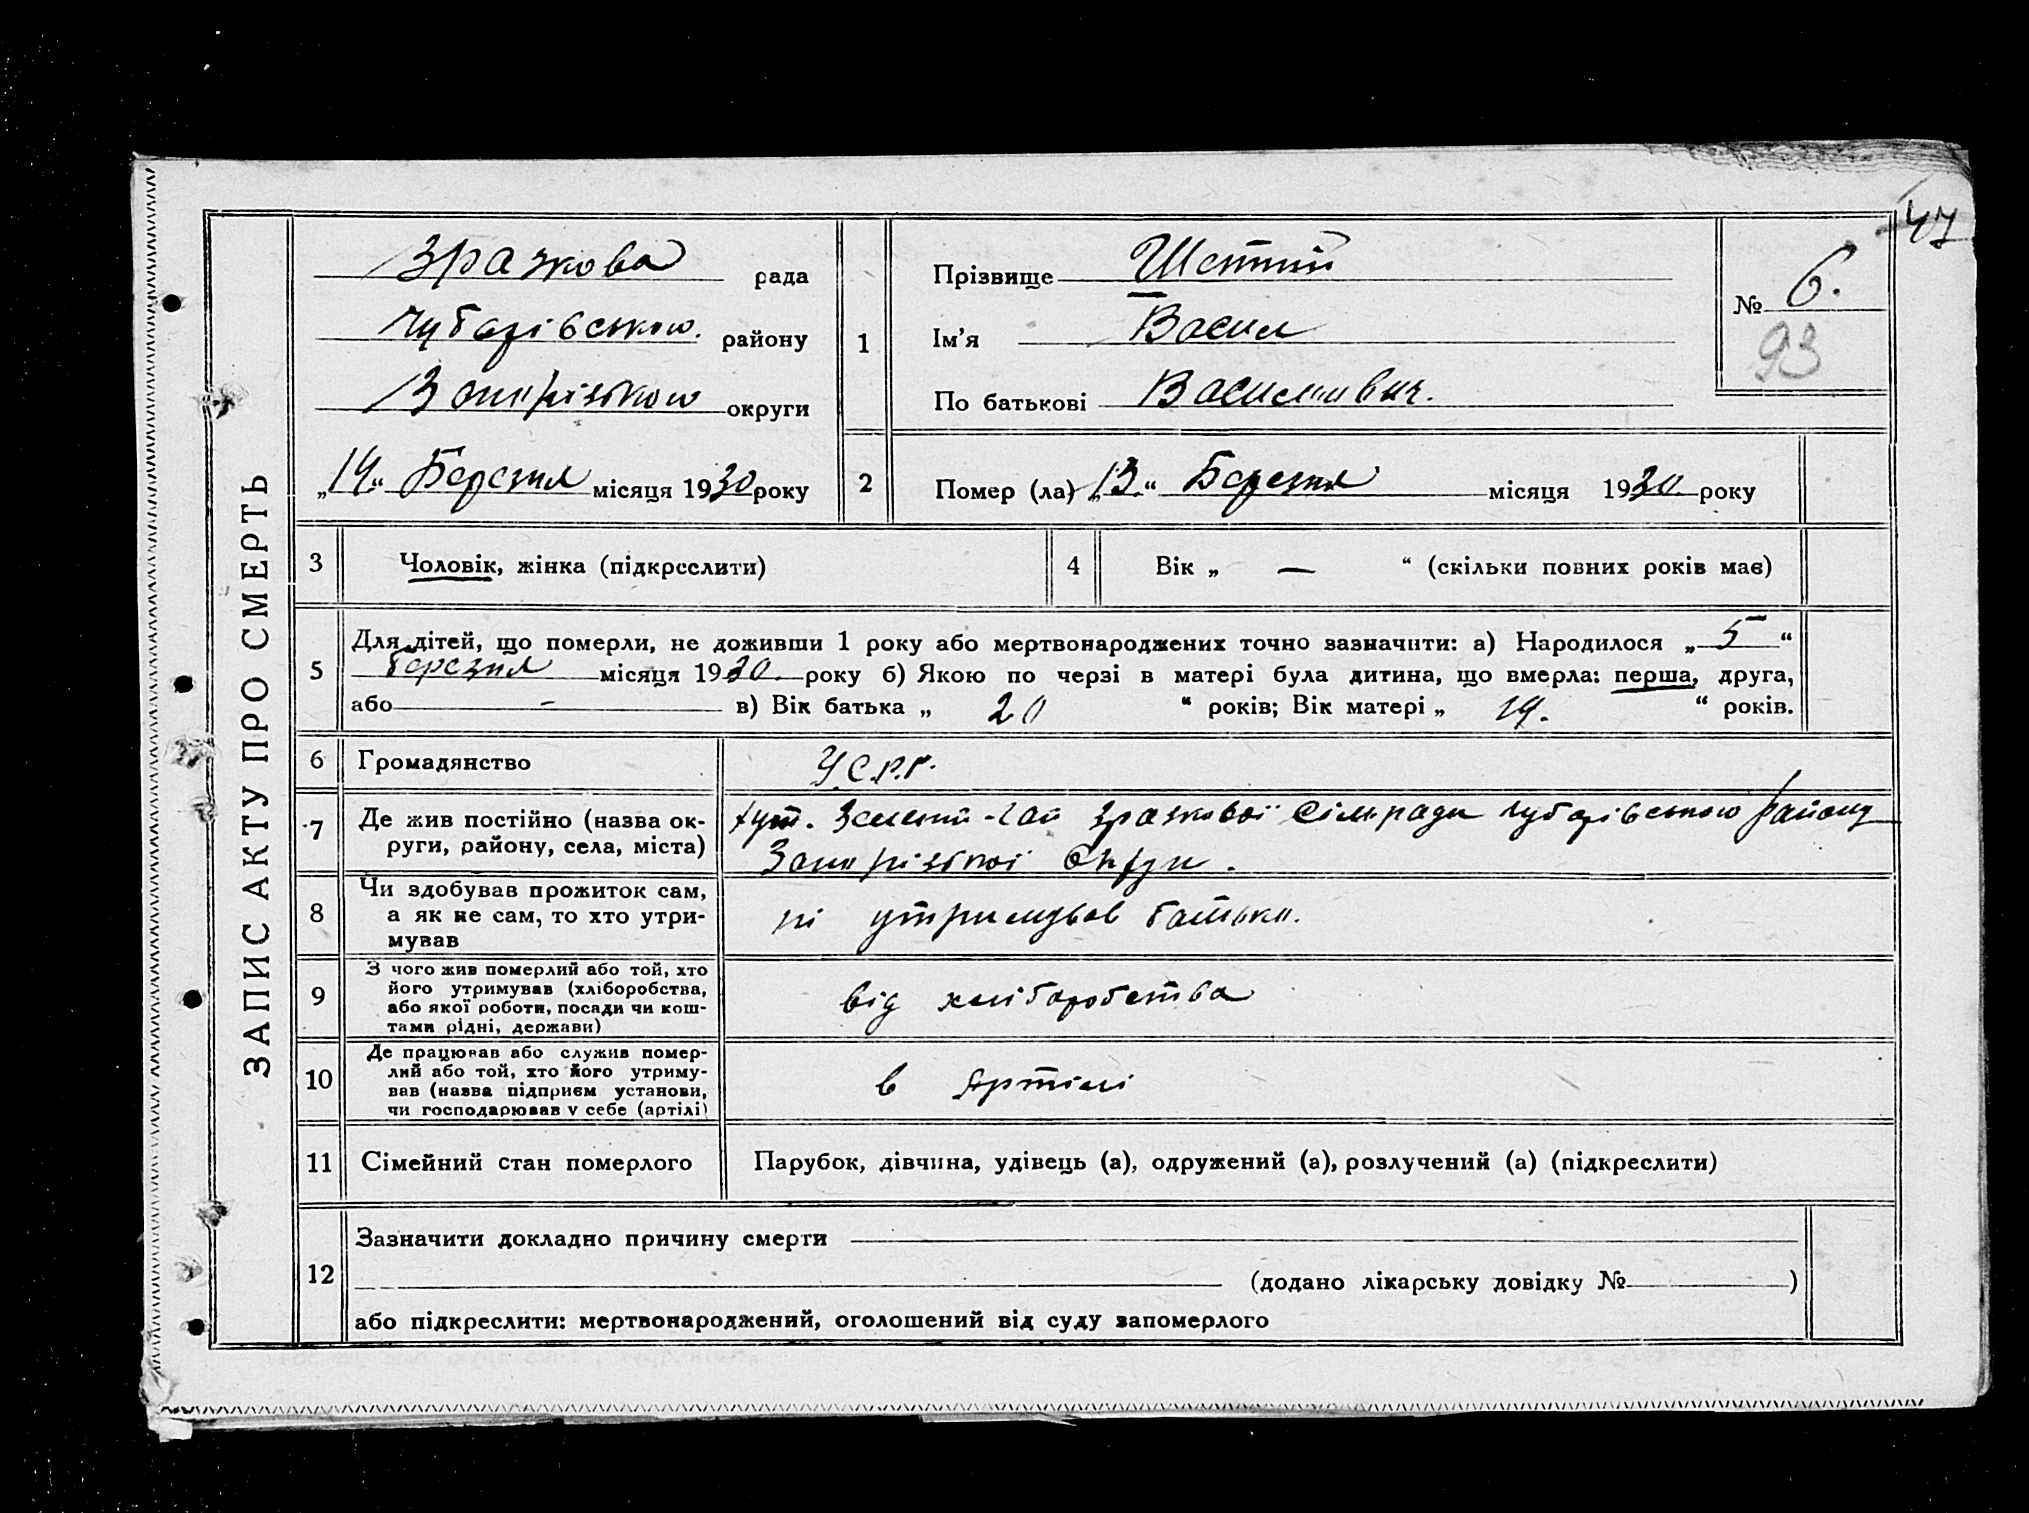 47
ЗАПИС АКТУ ПРО СМЕРТЬ
Зразкова рада
Чубарівського району
Запорізького округи
„14“ Березня місяця 1930 року
1
Прізвище
Ім'я Васил
По батькові Васильович.
№ 6.
93
2
Помер (ла) „13“ Березня місяця 1930 року
3
Чоловік, жінка (підкреслити)
4
Вік „ — “ (скільки повних років має)
5
Для дітей, що померли, не доживши 1 року або мертвонароджених точно зазначити: а) Народилося „5“
березня місяця 1930 року б) Якою по черзі в матері була дитина, що вмерла: перша, друга,
або - в) Вік батька „ 20 “ років; Вік матері „ 19. “ років.
6
Громадянство
У.С.Р.Р.
7
Де жив постійно (назва ок-
руги, району, села, міста)
хут. Зелений-Гай Зразкової Сільради Чубарівського району
Запорізької Округи.
8
Чи здобував прожиток сам,
а як не сам, то хто утри-
мував
ні утримував батько.
9
З чого жив померлий або той, хто
його утримував (хліборобства,
або якої роботи, посади чи кош-
тами рідні, держави)
від хліборобства
10
Де працював або служив помер-
лий або той, хто його утриму-
вав (назва підприєм установи,
чи господарював у себе (артілі)
в Артілі
11
Сімейний стан померлого
Парубок, дівчина, удівець (а), одружений (а), розлучений (а) (підкреслити)
12
Зазначити докладно причину смерти
(додано лікарську довідку № )
або підкреслити: мертвонароджений, оголошений від суду запомерлого